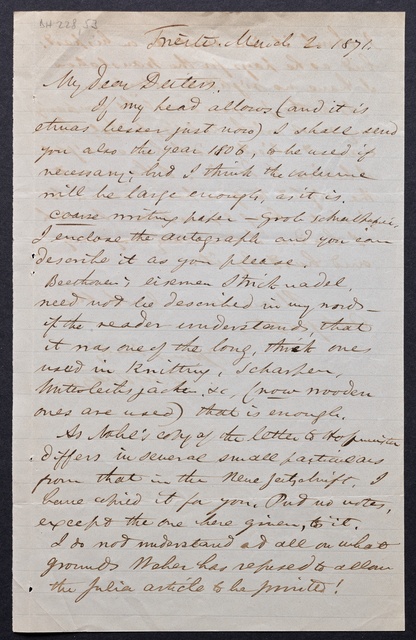 BH 228, 53
Trieste, March 2. 1871.
My Dear Deiters.
If my head allows (and it is
etwas besser just now) I shall send
you also the year 1806, to be used if
necessary; but I think the volume
will be large enough, as it is.
coarse writing paper — grob
I enclose the autograph and you can
describe it as you please.
Beethoven's eisernen Stricknadel
need not be described in my words —
if the reader understands, that
it was one of the long, thick ones
used in Knitting, Scharfen,
&c, (now wooden
ones are used) that is enough.
As Nohl's copy of the letter to
differs in several small particulars
from that in the Neue Zeitschrift, I
have copied it for you. Put no notes,
except the one here given, to it.
I do not understand at all on what
grounds Weber has refused to allow
the Julia article to be printed!